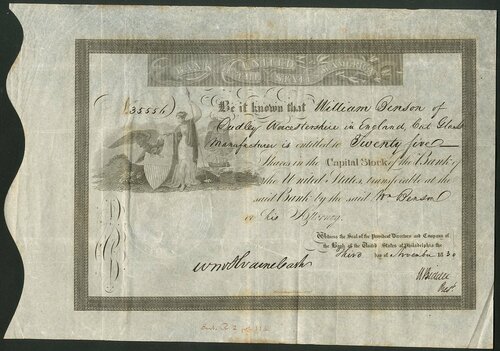 BANK UNITED STATES AMERICA
(35556)
Be it known that William Benson of
Dudley Worcestershire in England, Cut Glass
Manufacturer is entitled to Twenty five
Shares in the Capital Stock of the Bank of
the United States, transferable at the
said Bank by the said Wm Benson
or his Attorney.
Witness the Seal of the President Directors and Company of
the Bank of the United States at Philadelphia the
Third day of November 1830
N Biddle
Prest.